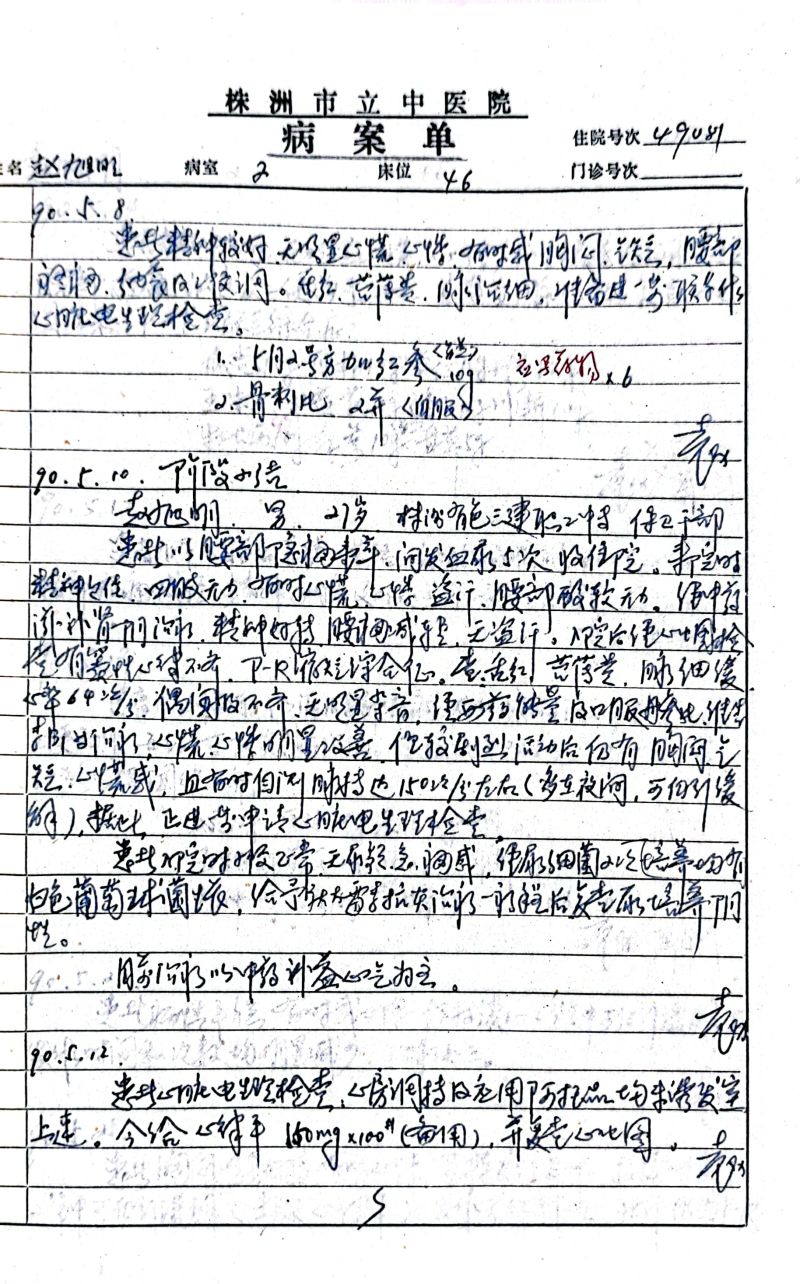 株洲市立中医院
病案单
住院号次 49081
姓名 赵旭明 病室 2 床位 46 门诊号次
90.5.8
患者精神较好,无明显心慌、心悸,有时感胸闷、气短,腰部
纳食及二便调。舌红、苔薄黄、脉沉细,准备进一步联系作
心脏电生理检查。
1. 5月2号方加红参 10g x6
2. 骨刺片 2瓶
90.5.10. 阶段小结
赵旭明,男,27岁 株洲有色三建职工 保卫干部
患者以腰部隐痛 间发血尿5次收住院。来院时
精神欠佳,四肢无力,有时心慌、心悸、盗汗、腰部酸软无力。经中药
滋补肾阴治疗,精神好转,腰痛减轻,无盗汗。入院后经心电图检
查有窦性心律不齐,P-R缩短综合征。查舌红 苔薄黄,脉细缓,
心率64次/分,偶闻及不齐,无明显杂音,经西药能量及口服
治疗,心慌、心悸明显改善,但较剧烈活动后仍有胸闷气
短、心慌感,且有时自测脉搏达150次/分左右(多在夜间,可自行缓
解),据此,正进步申请心脏电生理检查。
患者入院时小便正常,无尿频急痛感,经尿细菌2次培养均有
白色葡萄球菌生长,给予 抗炎治疗一疗程后复查尿培养阴
性。
目前治疗以中药补益心气为主。
90.5.12.
患者心脏电生理检查,心房调搏及应用阿托品均未诱发室
上速。今给心律平 150mg x100# (备用),并复查心电图。
5